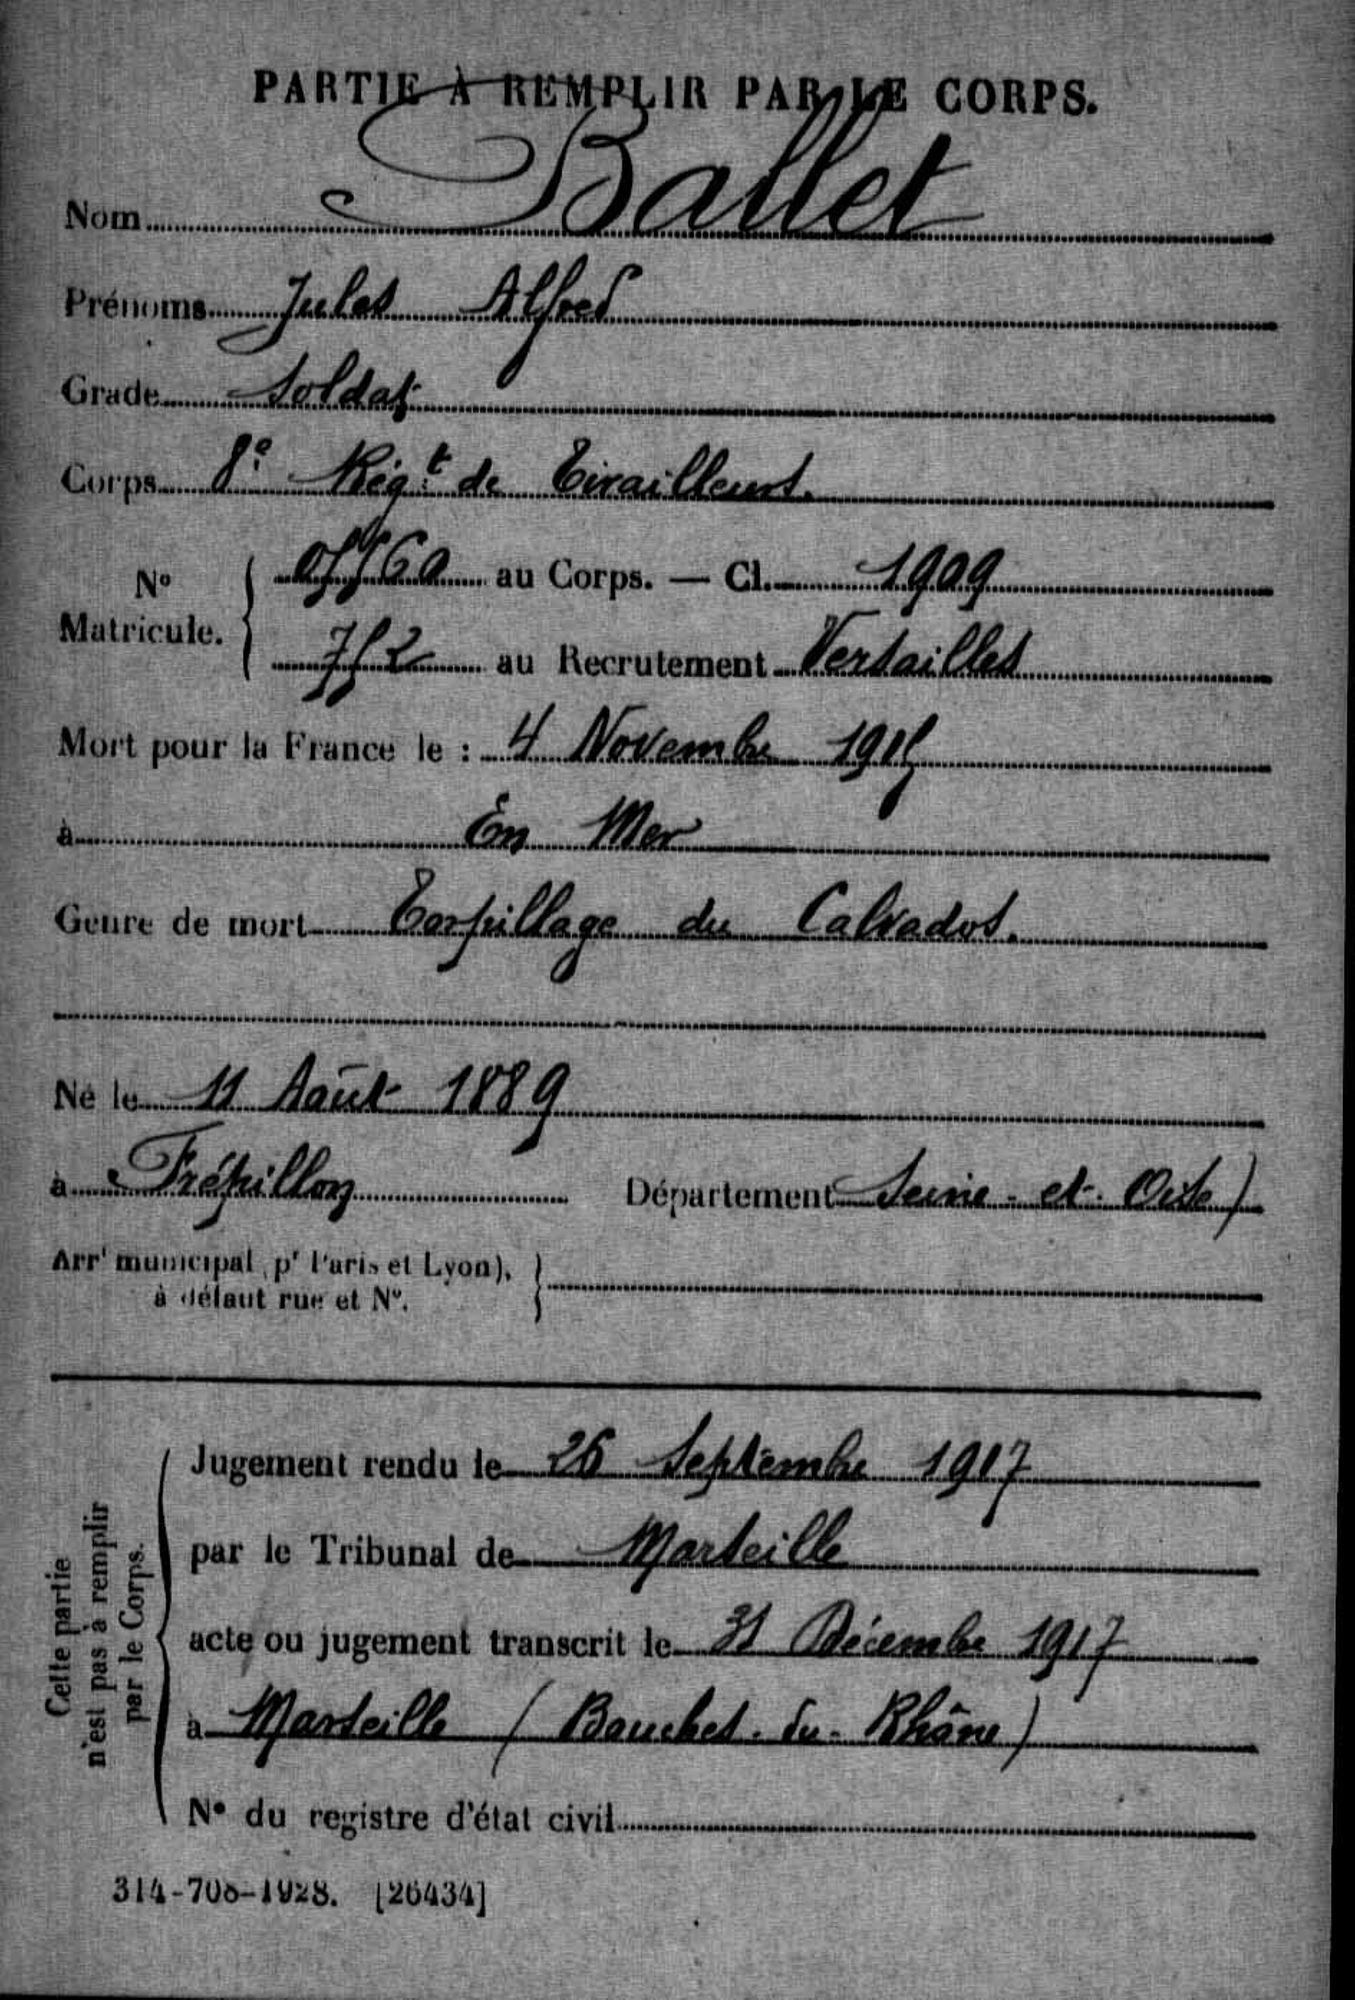 PARTIE À REMPLIR PAR LE CORPS.
Nom Ballet
Prénoms Jules Alfred
Grade Soldat
Corps 8e Régt de Tirailleurs.
No Matricule. { au Corps. — Cl. 1909
752 au Recrutement Versailles
Mort pour la France le : 4 Novembre 1915
à En Mer
Genre de mort Torpillage du Calvados.
Né le 11 Août 1889
à Frépillon Département Seine-et-Oise)
Arrt municipal (pr Paris et Lyon),
à défaut rue et No.
Cette partie
n'est pas à remplir
par le Corps.
Jugement rendu le 26 Septembre 1917
par le Tribunal de Marseille
acte ou jugement transcrit le 31 Décembre 1917
à Marseille (Bouches-du-Rhône)
No du registre d'état civil
314-708-1928. [26434]